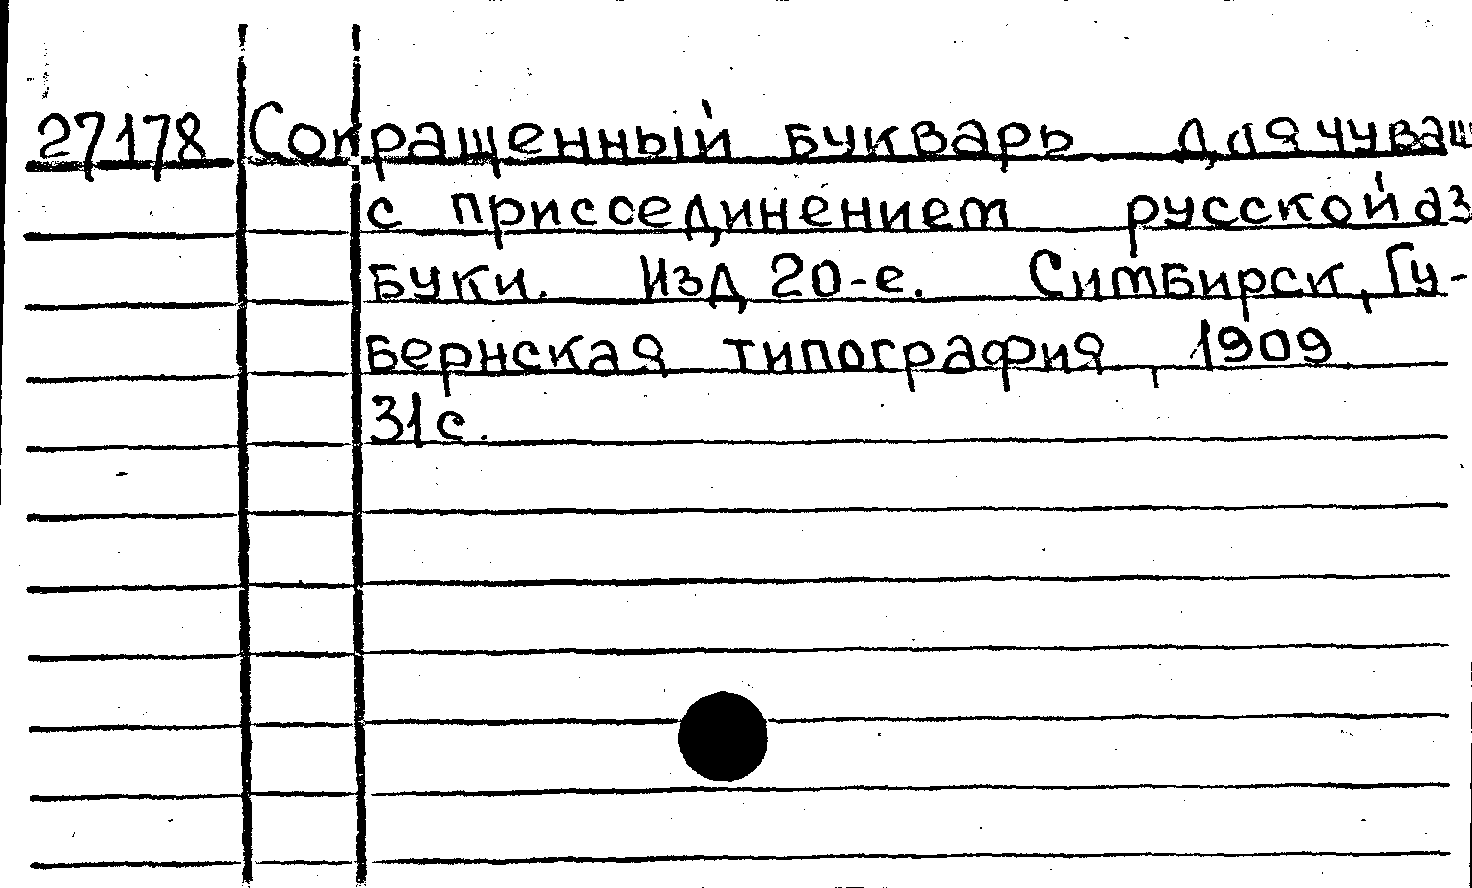 27178 Сокращенный букварь для чуваш
с присоединением русской аз
буки. Изд 20-е. Симбирск, Гу-
бернская типография, 1909
31с.